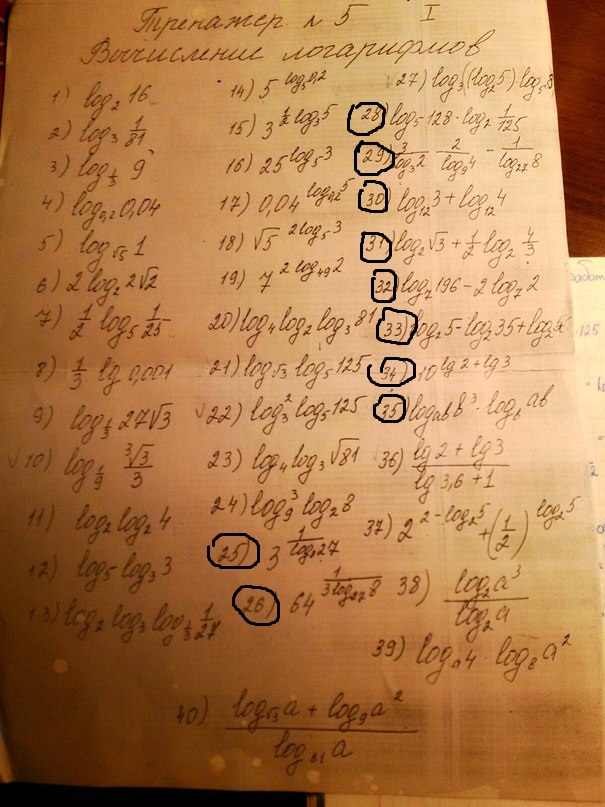 Тренажер №5 I
Вычисление логарифмов
1) log₂ 16
2) log₃ 1/81
3) log_{1/3} 9
4) log_{0,2} 0,04
5) log_{√5} 1
6) 2 log₂ 2√2
7) 1/2 log₅ 1/25
8) 1/3 lg 0,001
9) log_{1/3} 27√3
√10) log_{1/9} ∛3/3
11) log₂ log₂ 4
12) log₅ log₃ 3
13) log₂ log₃ log_{1/3} 1/27
14) 5^{log₅ 0,2}
15) 3^{1/2 log₃ 5}
16) 25^{log₅ 3}
17) 0,04^{log_{0,2} 5}
18) √5^{2 log₅ 3}
19) 7^{2 log₄₉ 2}
20) log₄ log₂ log₃ 81
21) log_{√3} log₅ 125
√22) log₃² log₅ 125
23) log₄ log₃ √81
24) log₉³ log₂ 8
25) 3^{1/log₇ 27}
26) 64^{1/(3 log₂₇ 8)}
√27) log₃(log₂ 5) log₅ 8
28) log₅ 128 · log₂ 1/125
29) 3/log₃ 2 - 2/log₉ 4 - 1/log₂₇ 8
30) log₁₂ 3 + log₁₂ 4
31) log₂ √3 + 1/2 log₂ 4/3
32) log₇ 196 - 2 log₇ 2
33) log₂ 5 - log₂ 35 + log₂ 56
34) 10^{lg 2 + lg 3}
35) log_{ab} b³ · log_b ab
36) (lg 2 + lg 3)/(lg 3,6 + 1)
37) 2^{2 - log₂ 5} + (1/2)^{log₂ 5}
38) log₂ a³ / log₂ a
39) log_a 4 · log₈ a²
40) (log_{√3} a + log₉ a²)/log₈₁ a